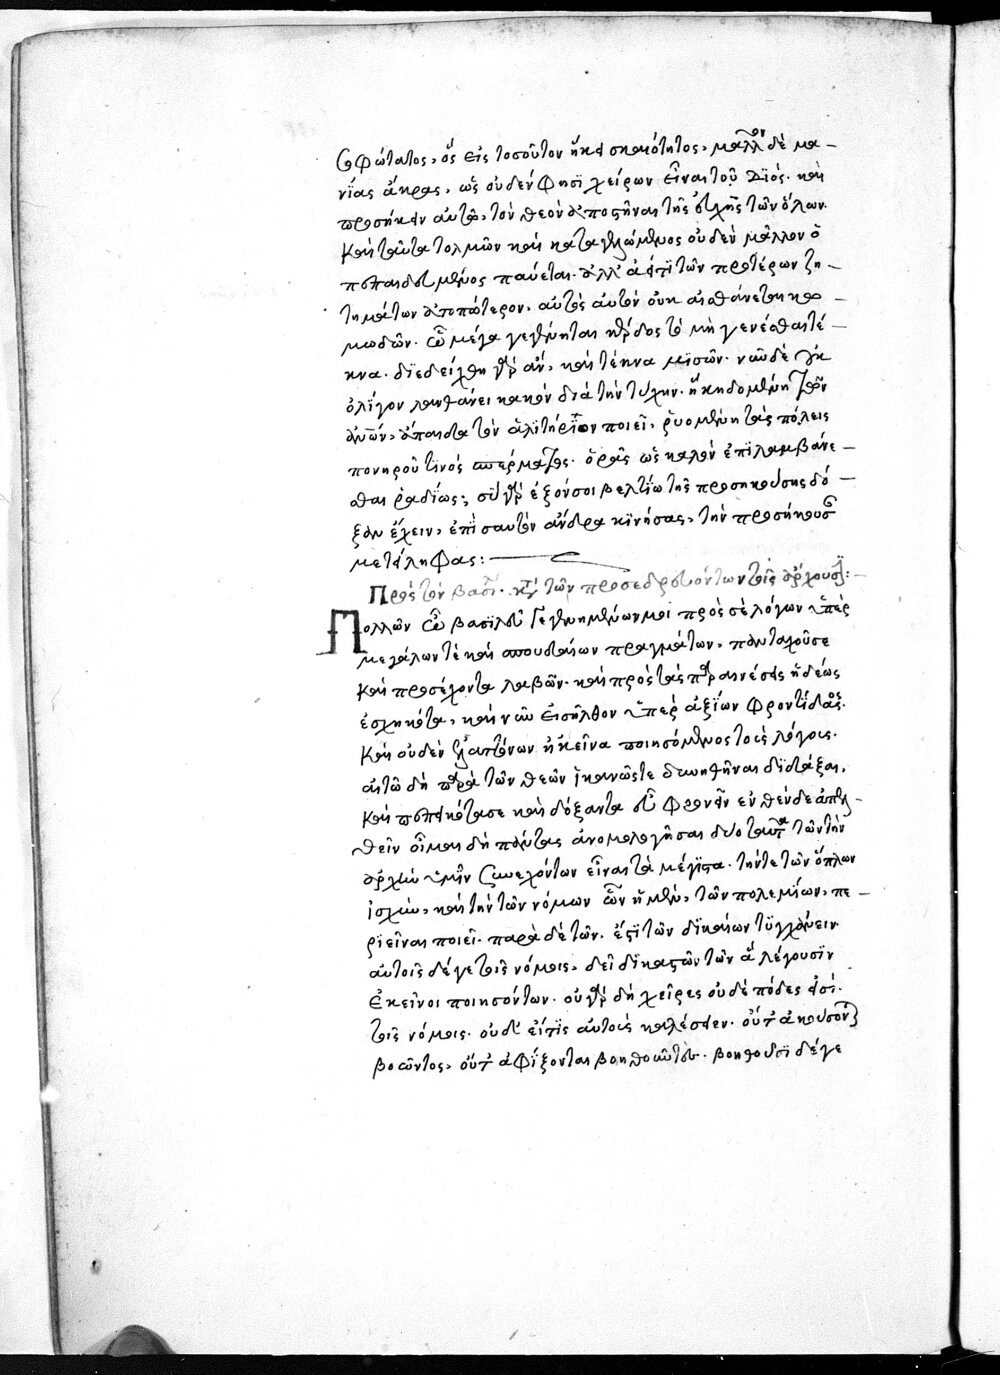 σοφώτατος, ὃς εἰς τοσοῦτον ἥκει σκαιότητος, μᾶλλον δὲ μα–
νίας ἄκρας, ὡς οὐδέν φησι χείρων εἶναι τοῦ Διός. καὶ
προσήκειν αὐτῶ, τὸν θεὸν ἀποστῆναι τῆς ἀρχῆς τῶν ὅλων.
καὶ ταῦτα τολμῶν καὶ καταγελώμενος οὐδὲν μᾶλλον ὁ
πεπαιδευμένος παύεται. ἀλλ' ἀεί τι τῶν προτέρων ζη–
τημάτων ἀτοπώτερον, αὐτὸς αὑτὸν οὐκ αἰσθάνεται κω–
μωδῶν. ὦ μέγα γεγένηται κέρδος τὸ μὴ γενέσθαι τέ–
κνα. διεδείχθη γὰρ ἂν, καὶ τέκνα μισῶν. νῦν δὲ
ὀλίγον λανθάνει κακὸν διὰ τὴν τύχην. ἢ κηδομένη τῶν
ἀνῶν, ἄπαιδα τὸν ἀλιτήριον ποιεῖ, ῥυομένη τὰς πόλεις
πονηροῦ τινὸς σπέρματος. ὁρᾶς ὡς καλὸν ἐπιλαμβάνε–
σθαι ῥαδίως; σὺ γὰρ ἐξόν σοι βελτίω τῆς προσηκούσης δό–
ξαν ἔχειν, ἐπὶ σαυτὸν ἄνδρα κινήσας, τὴν προσήκουσαν
μετείληφας:
Πρὸς τὸν βασι. κατὰ τῶν προσεδρευόντων τοῖς ἄρχουσι:
Πολλῶν ὦ βασιλεῦ γεγενημένων μοι πρὸς σὲ λόγων ὑπὲρ
μεγάλων τὲ καὶ σπουδαίων πραγμάτων, πανταχοῦ σε
καὶ προσέχοντα λαβῶν. καὶ πρὸς τὰς παραινέσεις ἡδέως
ἐσχηκότα, καὶ νῦν εἰσῆλθον ὑπὲρ ἀξίων φροντίδος.
καὶ οὐδὲν ἐλαττόνων ἢ κεῖνα ποιησόμενος τοὺς λόγους.
αἰτῶ δὴ παρὰ τῶν θεῶν ἱκανῶς τε δυνηθῆναι διδάξαι,
καὶ πεπεικότα σε καὶ δόξαντα εὖ φρονεῖν ἐνθένδε ἀπελ–
θεῖν οἶμαι δὴ πάντας ἀνομολογῆσαι δύο ταῦτα τῶν τὴν
ἀρχὴν ὑμῖν συνεχόντων εἶναι τὰ μέγιστα. τήν τε τῶν ὅπλων
ἰσχὺν, καὶ τὴν τῶν νόμων ὧν ἡ μὲν, τῶν πολεμίων, πε–
ριεῖναι ποιεῖ. παρὰ δὲ τῶν. ἔστι τῶν δικαίων τυγχάνειν.
αὐτοῖς δέ γε τοῖς νόμοις, δεῖ δικαστῶν τῶν ἃ λέγουσιν
ἐκεῖνοι ποιησόντων. οὐ γὰρ δὴ χεῖρες οὐδὲ πόδες εἰσὶ.
τοῖς νόμοις. οὐδ' εἴ τις αὐτοὺς καλέσειεν. οὔτ' ἀκούσονται
βοῶντος, οὔτ' ἀφίξονται βοηθοῦντες. βοηθοῦσι δέ γε